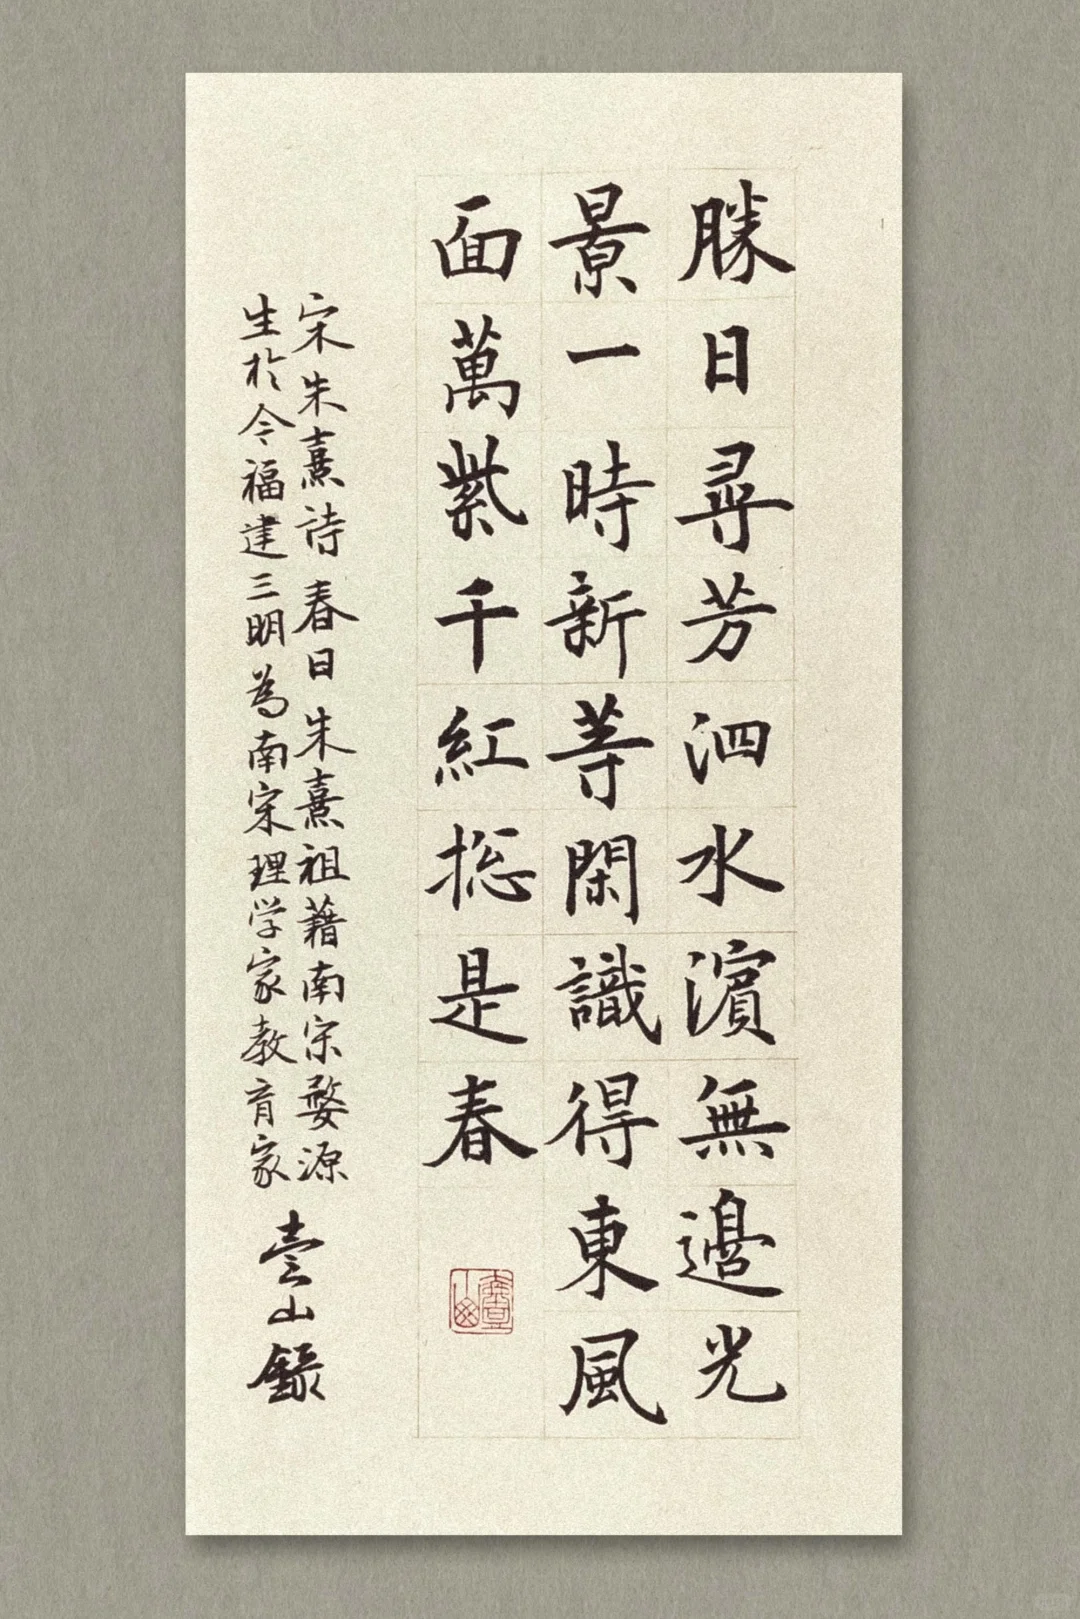 勝日尋芳泗水濵無邉光
景一時新等閑識得東風
面萬紫千紅揔是春
宋朱熹詩春日朱熹祖藉南宋婺源
生於今福建三明為南宋理学家教育家
壹山錄